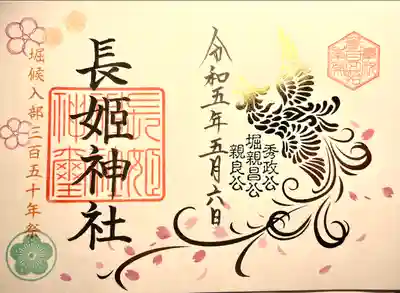 令和五年五月六日
秀政公
堀親昌公
親良公
長姫神社
堀候入部三百五十年祭